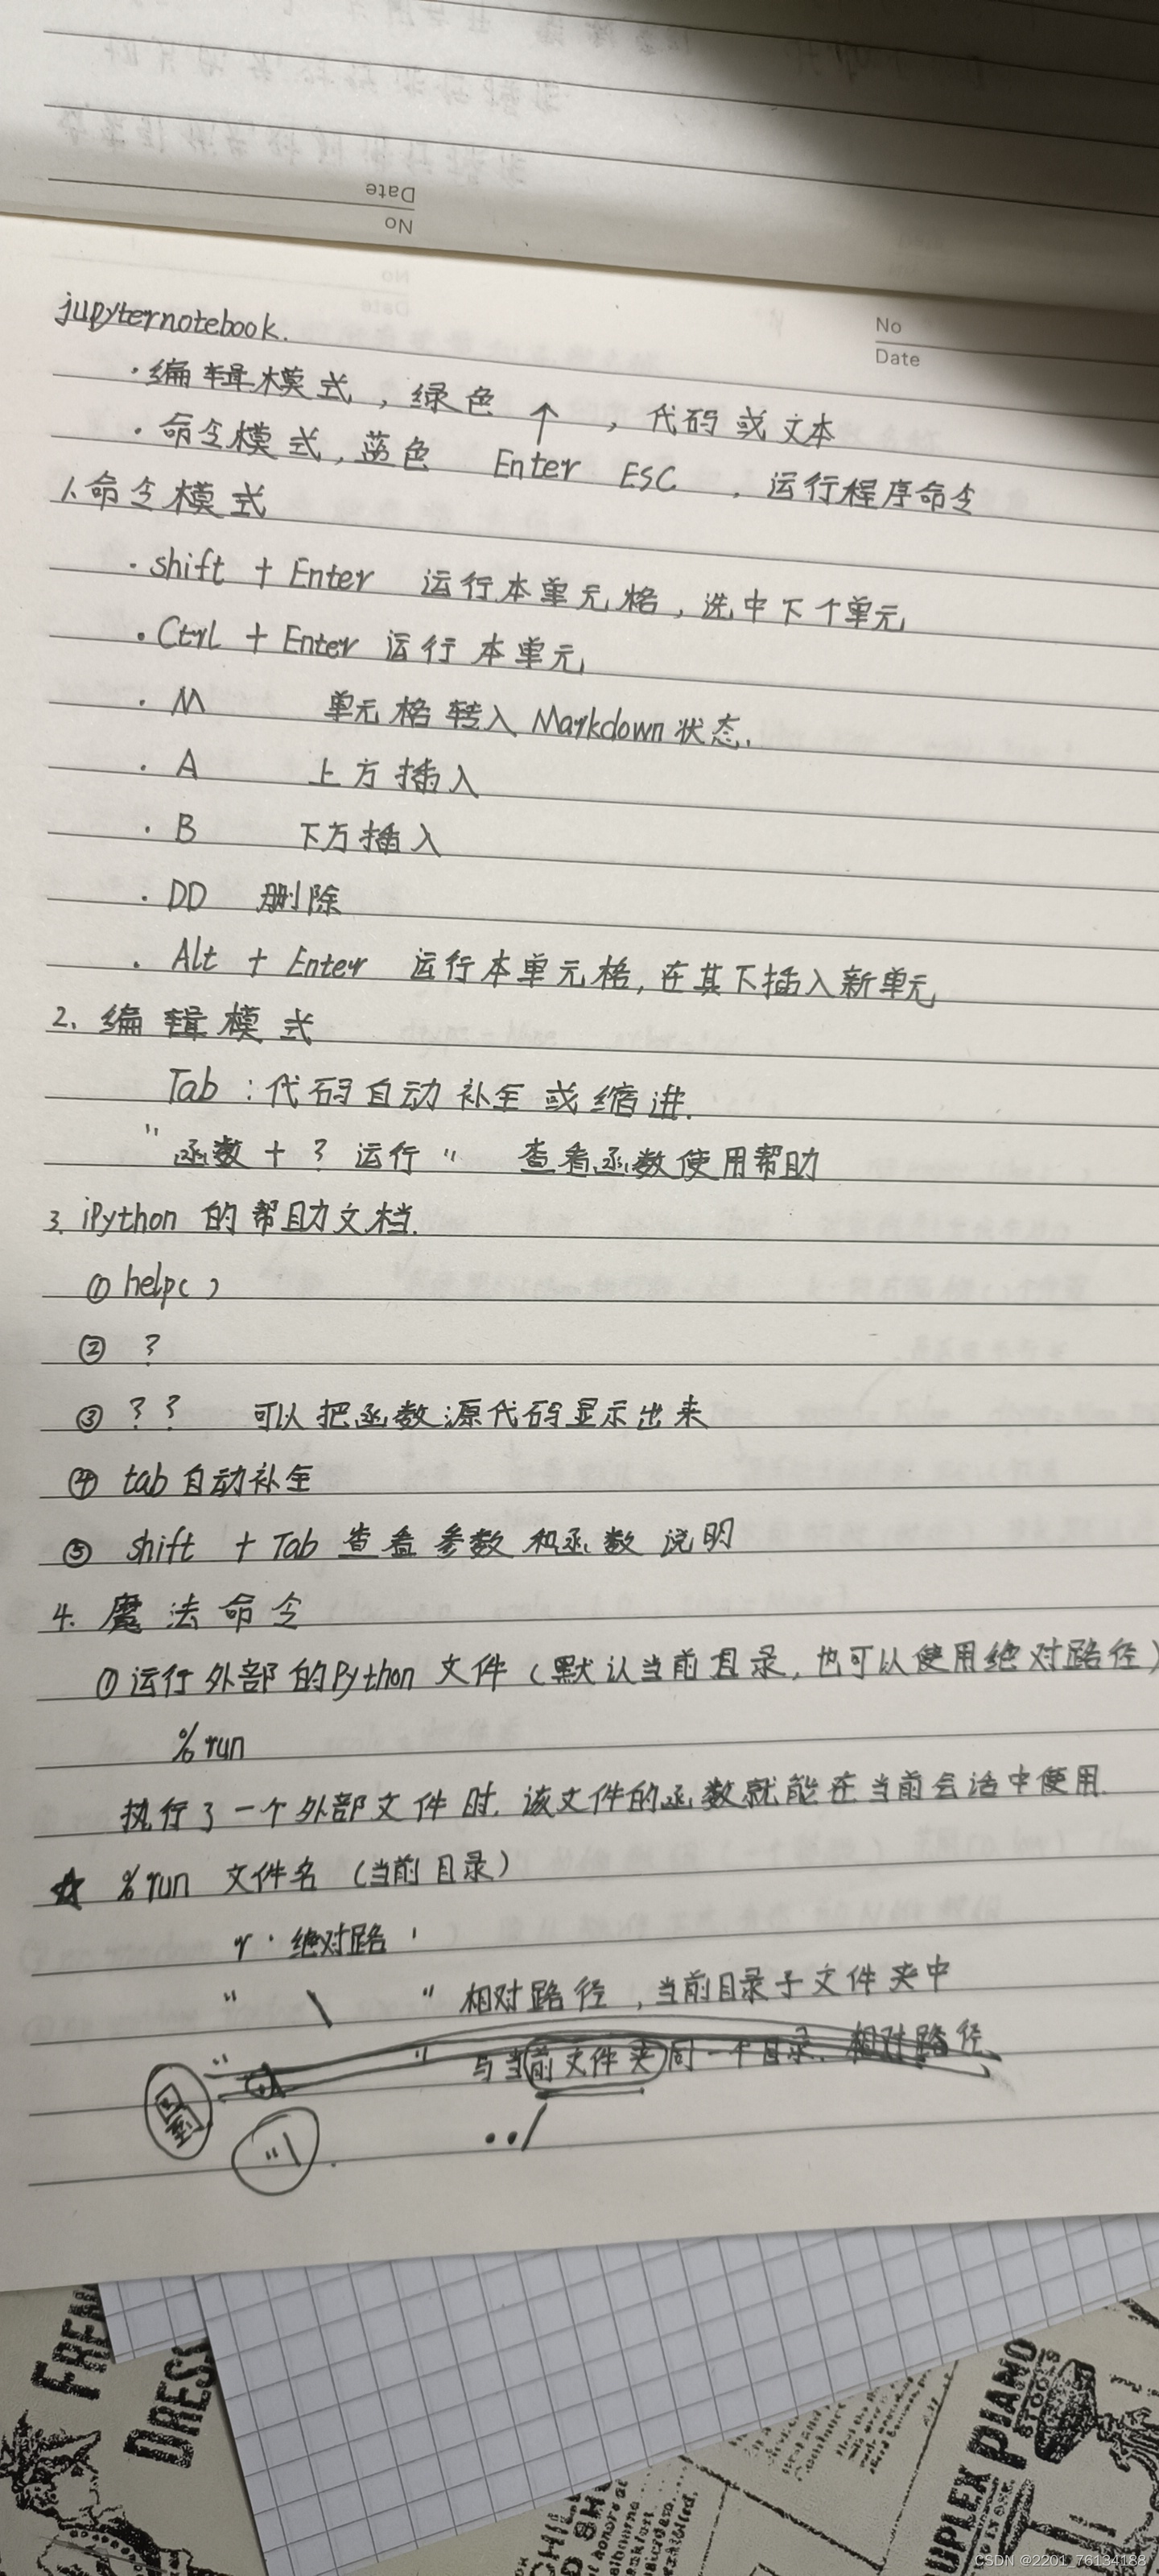 Date
No
No
Date
jupyternotebook.
·编辑模式，绿色 ↑ ，代码或文本
·命令模式，蓝色 Enter ESC ，运行程序命令
1.命令模式
·shift + Enter 运行本单元格，选中下个单元
·Ctrl + Enter 运行本单元
·M 单元格转入Markdown状态.
·A 上方插入
·B 下方插入
·DD 删除
·Alt + Enter 运行本单元格，在其下插入新单元
2.编辑模式
Tab：代码自动补全或缩进.
"函数+？运行" 查看函数使用帮助
3.iPython的帮助文档.
①help()
②？
③？？ 可以把函数源代码显示出来
④tab自动补全
⑤shift + Tab 查看参数和函数说明
4.魔法命令
①运行外部的Python文件（默认当前目录，也可以使用绝对路径）
%run
执行了一个外部文件时.该文件的函数就能在当前会话中使用.
☆ %run 文件名（当前目录）
r'绝对路'
" \ " 相对路径，当前目录子文件夹中
" " 与当前文件夹同一个目录.相对路径
../
FREN
DRESS
UPLEX PIAMO
STOOLS
CSDN @2201_76134188